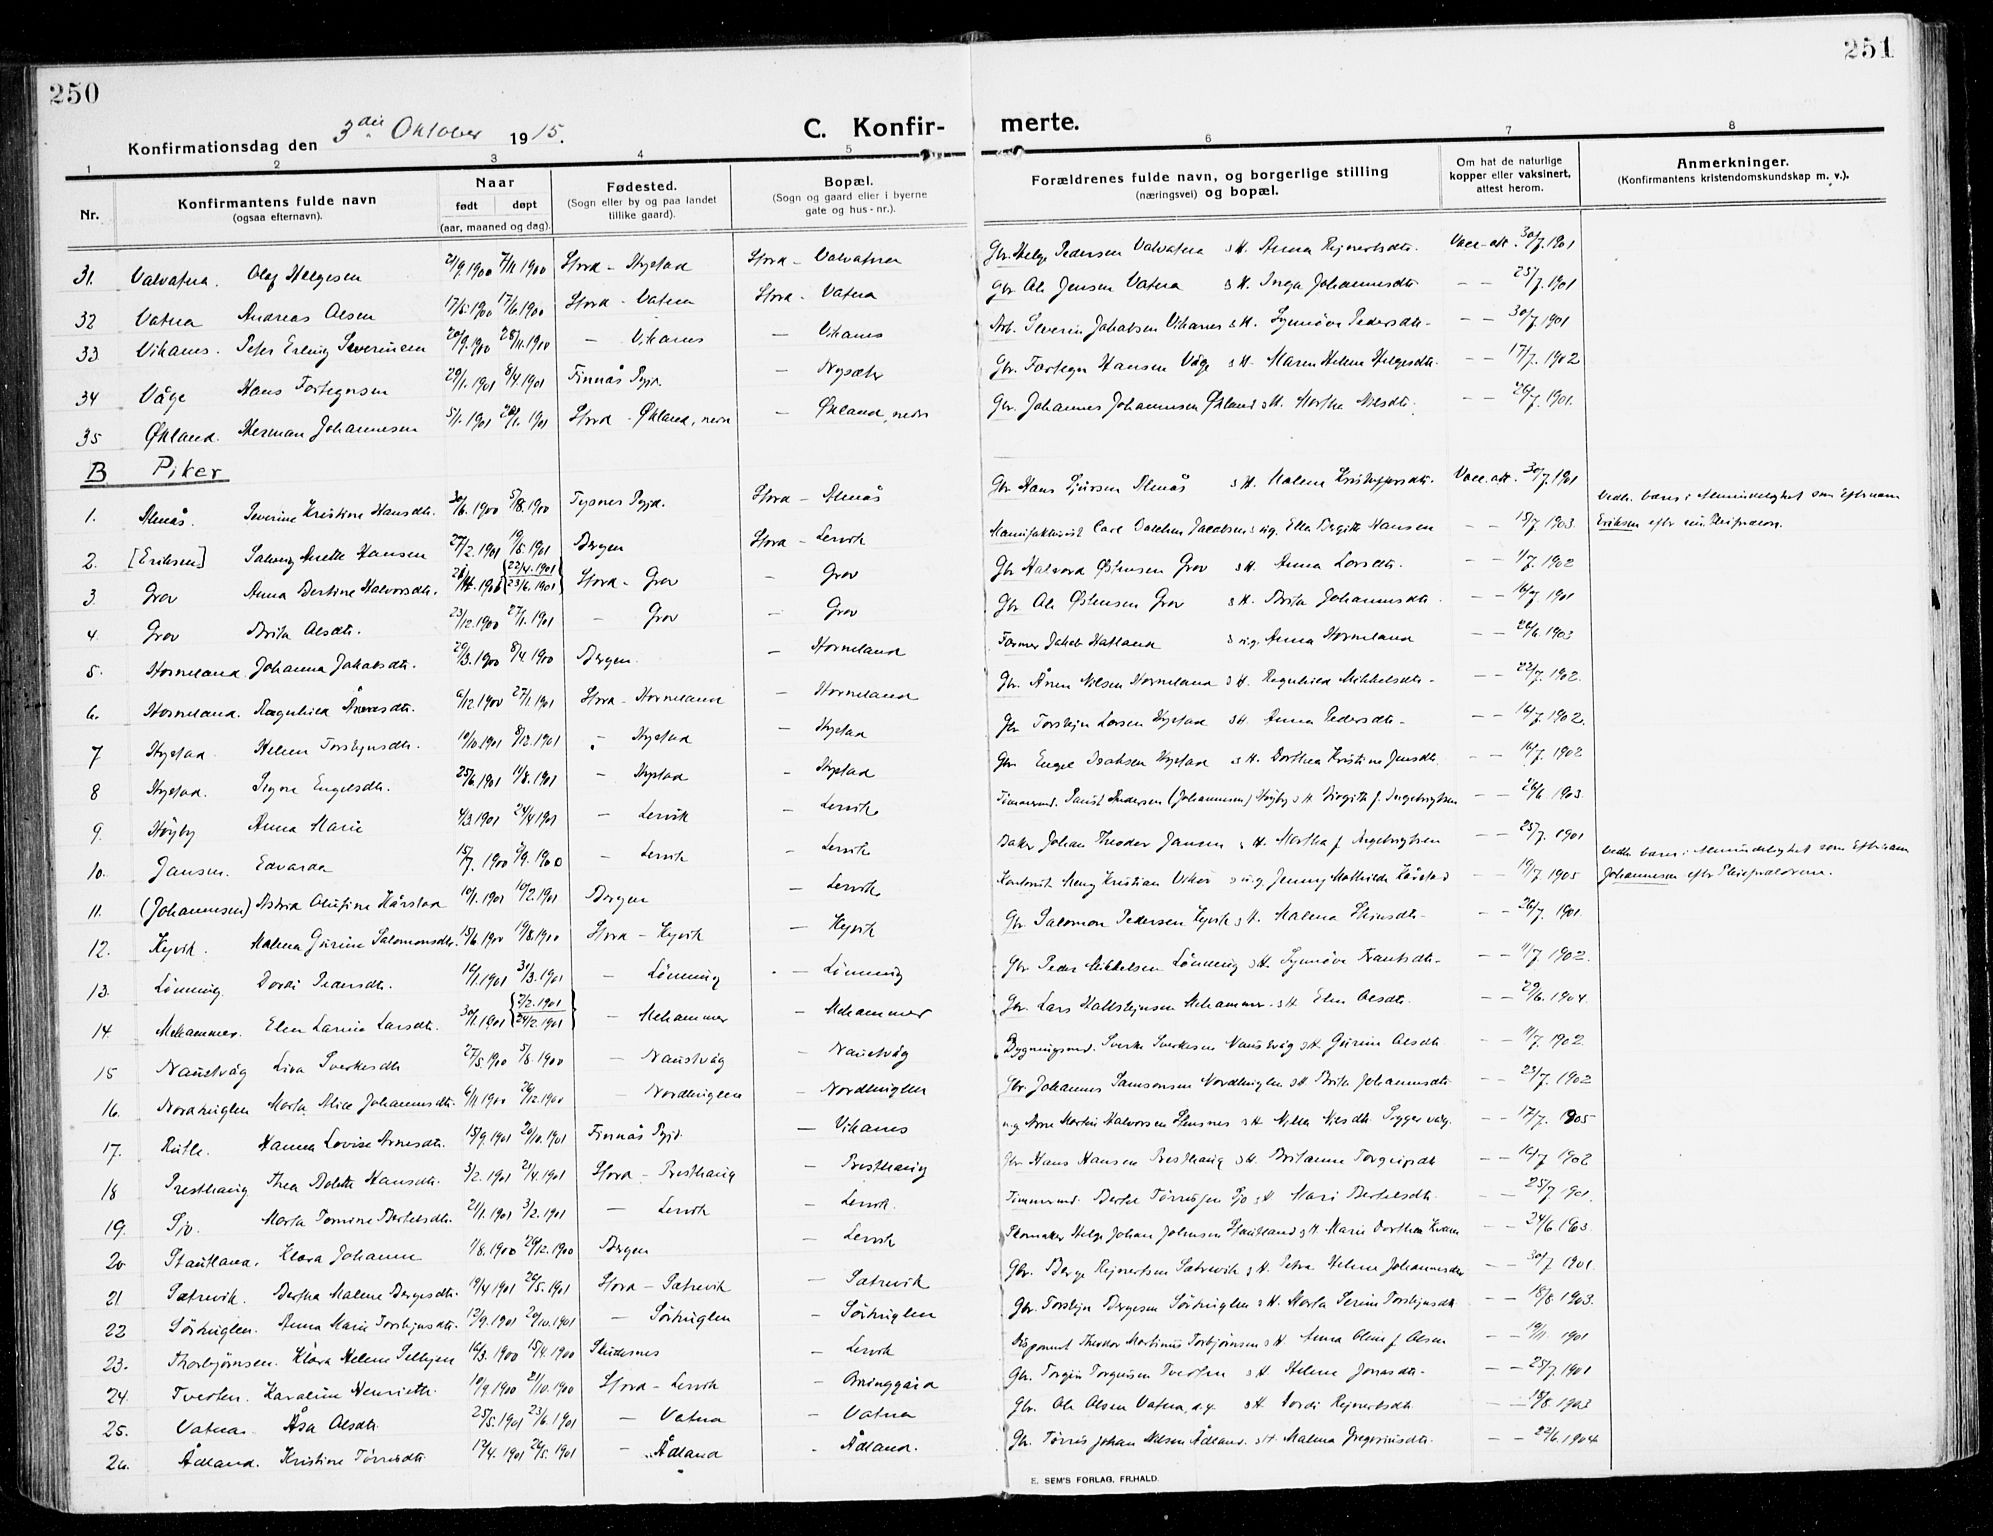 250
251
Konfirmationsdag den 3die Oktober 1915.
C. Konfir-
merte.
1 2 3 4 5 6 7 8
Nr.
Konfirmantens fulde navn
(ogsaa efternavn).
Naar
født døpt
(aar, maaned og dag).
Fødested.
(Sogn eller by og paa landet
tillike gaard).
Bopæl.
(Sogn og gaard eller i byerne
gate og hus-nr.).
Forældrenes fulde navn, og borgerlige stilling
(næringsvei) og bopæl.
Om hat de naturlige
kopper eller vaksinert,
attest herom.
Anmerkninger.
(Konfirmantens kristendomskundskap m. v.).
31. Valvatna. Olaf Helgesen 21/9.1900 7/11.1900 Stord - Hystad Stord - Valvatna Gbr. Helge Pedersen Valvatna s H. Anna Rejnertsdtr. Vacc. att. 30/7.1901
32 Vatna Andreas Olsen 17/5.1900 17/6.1900 Stord - Vatna Stord - Vatna Gbr Ole Jensen Vatna s H. Inga Johannesdtr - - 25/7.1901
33 Vikanes. Peter Erling Severinsen 20/9.1900 28/11.1900 - Vikanes - Vikanes Arb. Severin Jakobsen Vikanes s H. Synnöve Pedersdtr - - 30/7.1901
34 Våge Hans Tortegersen 29/1.1901 8/4.1901 Finnås Pgjd. - Nysæter Gbr. Torteger Hansen Våge s H. Maren Helene Helgesdtr. - - 17/7.1902
35 Økland. Herman Johannesen 5/1.1901 20/1.1901 Stord - Økland, nedre - Økland, nedre Gbr. Johannes Johannesen Økland s H. Marthe Nilsdtr. - - 26/7.1901.
B Piker
1. Almås. Severine Kristine Hansdtr. 30/6.1900 5/8.1900 Tysnes Pgjd. Stord - Almås Gbr Hans Sjursen Almås s H. Malene Kristoffersdtr. Vacc. att. 30/7.1901
2. [Eriksen] Solveig Anette Hansen 27/2.1901 19/5.1901 Bergen Stord - Lervik Manufakturist Carl Jacobsen s ug. Ella Birgitte Hansen - - 15/7.1903. Vedk. bærer i Almindelighet som Efternavn
Eriksen efter sin Pleiefader.
3. Grov Anna Bertine Halvorsdtr. {22/4.1901 23/6.1901} Stord - Grov - Grov Gbr Halvord Östensen Grov s H. Anna Larsdtr. - - 1/7.1902
4. Grov Brita Olsdtr. 23/12.1900 27/1.1901 - Grov - Grov Gbr. Ole Östensen Grov s H. Brita Johannesdtr. - - 16/7.1901
5. Horneland. Johanna Jakobsdtr. 29/3.1900 8/4.1900 Bergen. - Horneland Former Jakob Hatland s ug. Anna Horneland - - 26/6.1903
6. Horneland. Ragnhild Ånensdtr. 6/12.1900 27/1.1901 Stord - Horneland - Horneland Gbr. Ånen Nilsen Horneland s H. Ragnhild Mikkelsdtr - - 22/7.1902.
7 Hystad. Helene Torsbjnsdtr. 10/10.1901 8/12.1901 - Hystad - Hystad Gbr Torsbjn Larsen Hystad s H. Anna Pedersdtr - - 16/7.1902.
8 Hystad. Signe Engelsdtr. 25/6.1901 11/8.1901 - Hystad - Hystad Gbr Engel Jsaksen Hystad s H. Dorthea Kristine Jensdtr. - - 16/7.1902
9. Höyby Anna Marie 4/3.1901 24/4.1901 - Lervik - Lervik Tømmermd. Andersen (Johannesen) Höyby s H. Birgitte f. Ingebrigtsen - - 26/6.1903.
10. Jansen. Edvarda 15/7.1900 2/9.1900 - Lervik - Lervik Baker Johan Theodor Jansen s H. Martha f. Ingebrigtsen - - 25/7.1901
11. (Johannesen) Astrid Olufine Hårstad 10/1.1901 10/2.1901 Bergen - Lervik Kontorist Henry Kristian s ug. Jenny Mathilde Hårstad - - 19/7.1905 Vedk. bærer i Almindelighet som Efternavn
Johannesen efter Pleieforældrene.
12. Kyvik. Malena Gurine Salomonsdtr. 15/6.1900 19/8.1900 Stord - Kyvik - Kyvik Gbr. Salomon Pedersen Kyvik s H. Malena - - 26/7.1901.
13. Lönning. Dordi Pedersdtr. 16/1.1901 31/3.1901 - Lönning - Lönning Gbr Peder Mikkelsen Lönning s H. Synnöve - - 11/7.1902.
14. Mehammer. Elen Larine Larsdtr. 30/1.1901 {2/2.1901 24/2.1901} - Mehammer - Mehammer Gbr. Lars Hallsbjnsen Mehammer s H. Elen Olsdtr. - - 29/6.1904.
15 Naustvåg Liva Sverkesdtr 27/5.1900 5/8.1900 - Naustvåg - Naustvåg Bygningsmd. Sverke Sverkesen Naustvåg s H. Gurine Olsdtr. - - 11/7.1902
16. Nordhuglen Marta Alice Johannesdtr. 6/11.1900 26/12.1900 - Nordhuglen - Nordhuglen Gbr. Johannes Samsonsen Nordhuglen s H. Brita Johannesdtr - - 23/7.1902
17. Rutle. Hanna Lovise Arnesdtr. 15/9.1901 20/10.1901 Finnås Pgjd. - Vikanes Arne Martin Halvorsen s H. - - 17/7.1905
18 Presthaug Thea Bolette Hansdtr. 3/2.1901 21/4.1901 Stord - Presthaug - Presthaug Gbr Hans Hansen Presthaug s H. Britanne Torgeirsdtr - - 16/7 1902
19. Sjo. Marta Tomine Bertelsdtr. 21/1.1901 3/2.1901 - Lervik - Lervik. Tømmermd. Bertel Sjo s H. Mari Bertelsdtr. - - 25/7 1901.
20 Stautland. Klara Johanne 1/8.1900 26/12.1900 Bergen - Lervik Skomaker Helge Johan Johnsen Stautland s H. Marie Dorthea - - 24/6.1903.
21 Sætrevik. Bertha Malene Bergesdtr. 19/4.1901 26/5.1901 Stord - Sætrevik - Sætrevik Gbr. Berge Rejnertsen Sætrevik s H. Petra Helene Johannesdtr - - 30/7 1901.
22 Sörhuglen. Anna Marie Torsbjnsdtr. 12/9.1901 20/10.1901 - Sörhuglen - Sörhuglen Gbr. Torsbjn Bergesen Sörhuglen s H. Marta Serine Torsbjnsdtr - - 18/8.1903.
23. Thorbjörnsen. Klara Helene 16/3.1900 15/4.1900 Skudesnes - Lervik Disponent Theodor Martinus Torbjørnsen s H. Anna Oline f. Olsen - - 19/11.1901
24. Tveiten. Karoline Henriette. 10/9.1900 21/10.1900 Stord - Lervik - Orninggård Gbr. Torgeir Torgeirsen Tveiten s H. Helene Jonasdtr - - 25/7.1901
25. Vatna. Åsa Olsdtr. 25/5.1901 23/6.1901 - Vatna - Vatna Gbr. Ole Olsen Vatna, d.y. s H. Dordi Rejnertsdtr. - - 18/8.1903
26. Ådland. Kristine Törresdtr 12/4.1901 26/5.1901 - Ådland - Ådland. Gbr. Törris Johan Nilsen Ådland. s H. Malena Gregeriusdtr. - - 22/6.1904
E. SEM'S FORLAG, FR.HALD.